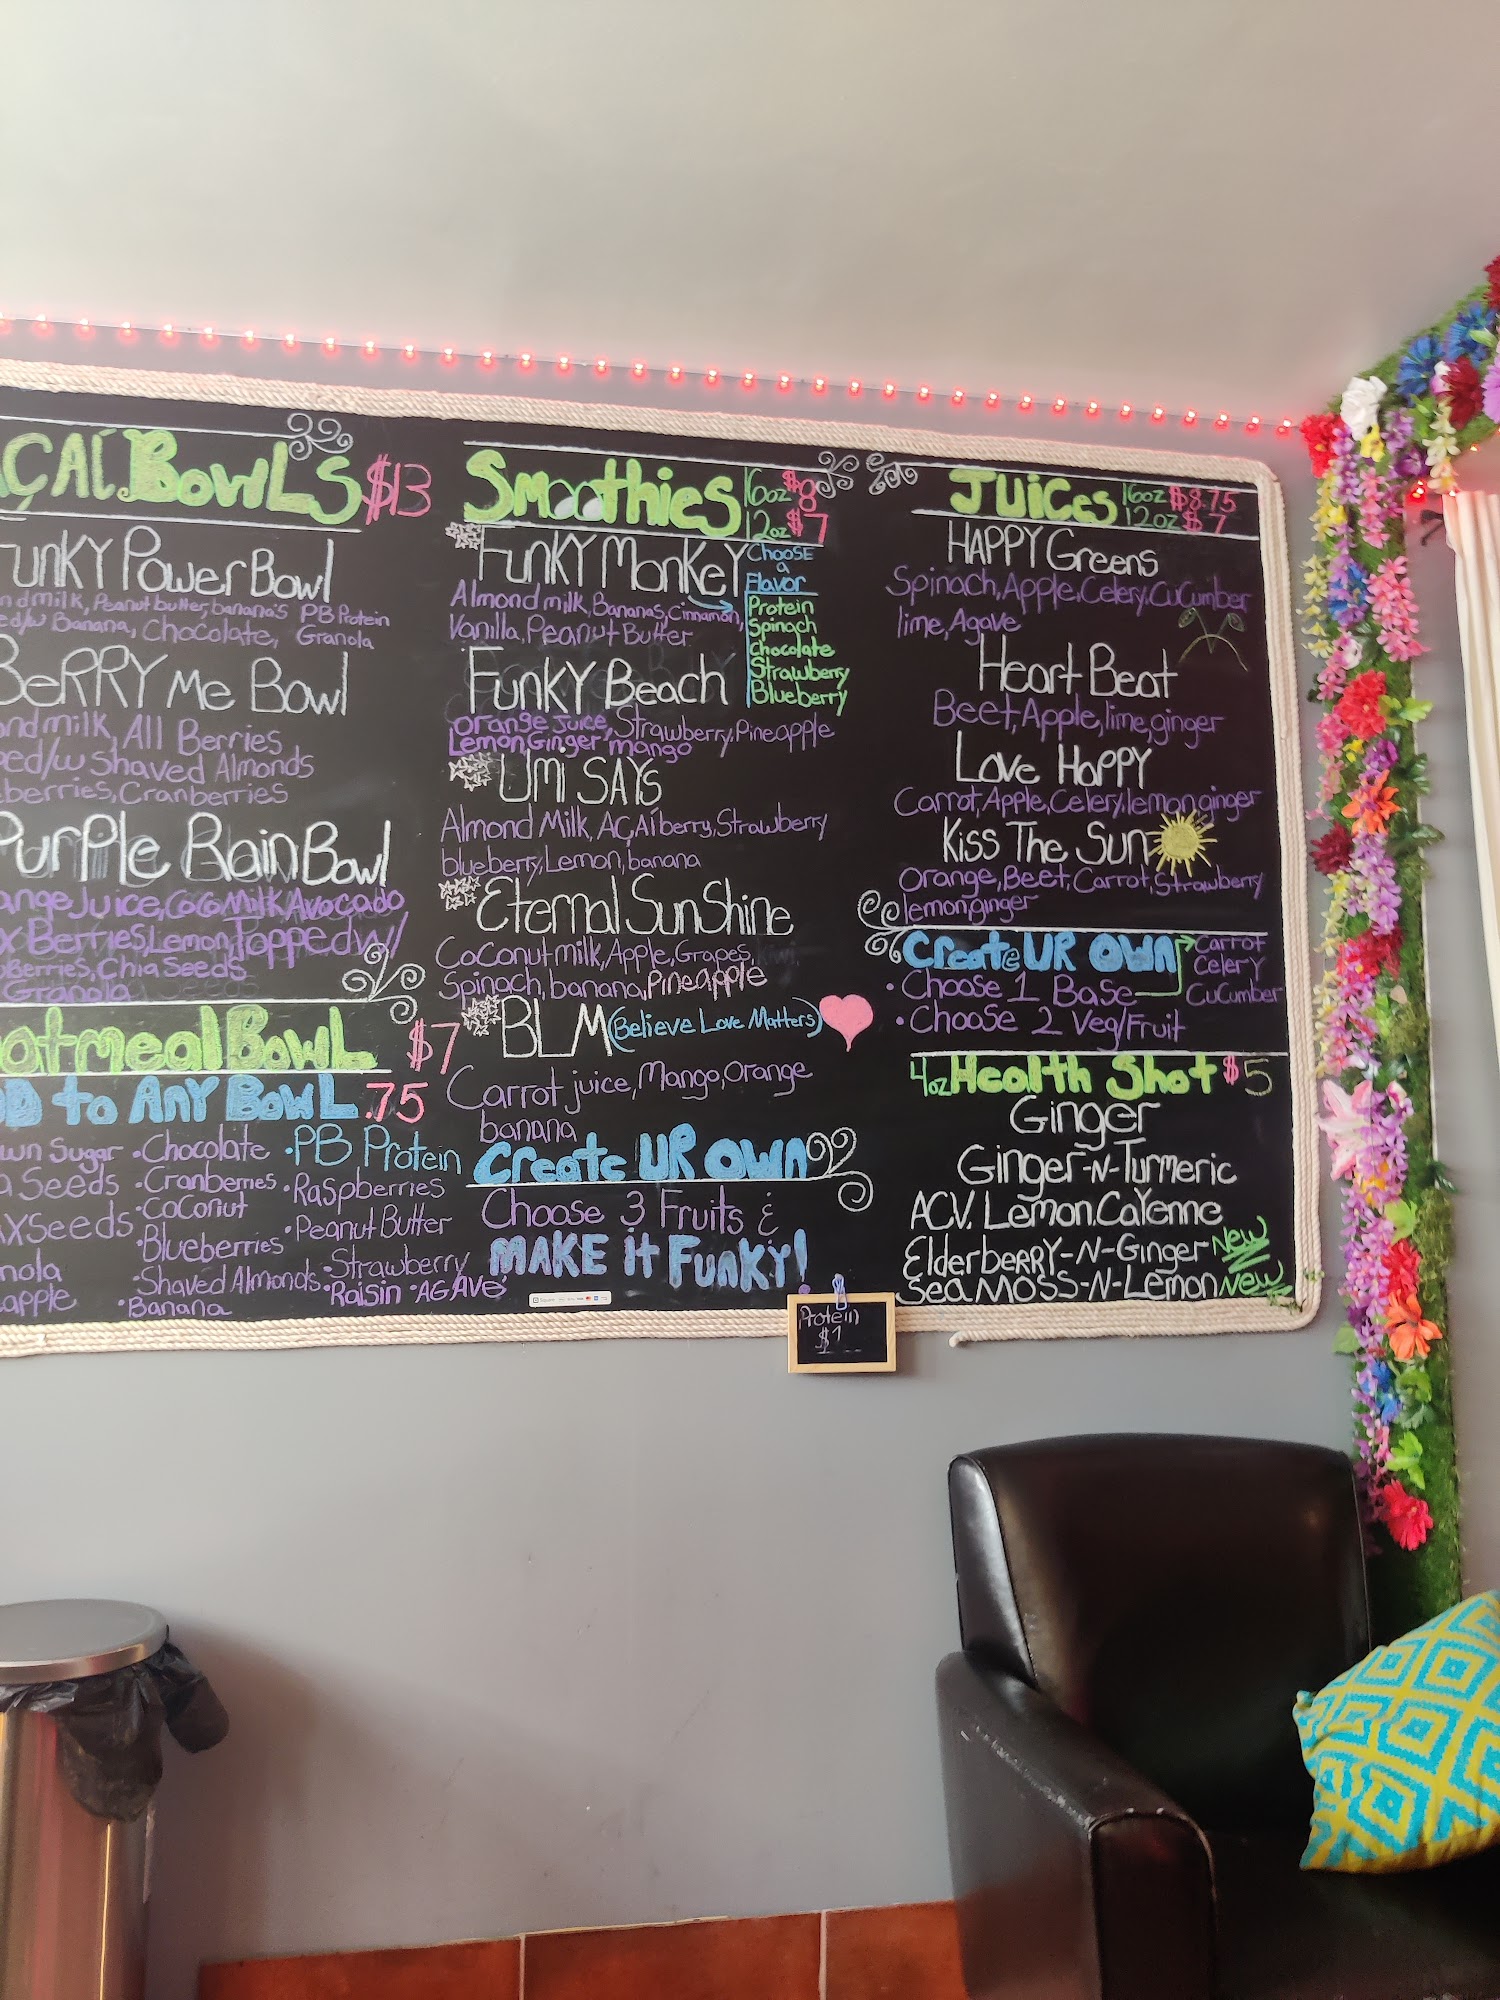 AÇAÍ BOWLS $13
FUNKY POWER BOWL
Milk, Peanut butter, banana's PB Protein
Banana, Chocolate, Granola
BERRY Me Bowl
milk, All Berries
w Shaved Almonds
berries, Cranberries
Purple Rain Bowl
Juice, CoCo Milk Avocado
Berries, Lemon, Topped w/
Berries, Chia Seeds
Granola
Oatmeal BowL $7
to ANY BOWL .75
Sugar
Seeds
Seeds
•Chocolate
•Cranberries
•CoConut
•Blueberries
•Shaved Almonds
•Banana
•PB Protein
•Raspberries
•Peanut Butter
•Strawberry
•Raisin •AGAve
Smoothies 16oz $8
12oz $7
FUNKY MonkeY
Almond milk, Bananas, Cinnamon,
Vanilla, Peanut Butter
Choose
a
Flavor
Protein
Spinach
Chocolate
Strawberry
Blueberry
FUNKY Beach
orange Juice, Strawberry, Pineapple
Lemon Ginger, mango
UMI SAYs
Almond Milk, AÇAí berry, Strawberry
blueberry, Lemon, banana
Eternal SunShine
CoConut milk, Apple, Grapes, kiwi,
Spinach, banana, Pineapple
BLM (Believe Love Matters)
Carrot juice, Mango, Orange
banana
Create UR OWN
Choose 3 Fruits &
MAKE it FUNKY!
Protein
$1
JUices 16oz $8.75
12oz $7
HAPPY Greens
Spinach, Apple, Celery, CuCumber
lime, Agave
Heart Beat
Beet, Apple, lime, ginger
Love HaPPY
Carrot, Apple, Celery, lemon, ginger
Kiss The Sun
Orange, Beet, Carrot, Strawberry
lemon, ginger
Create UR OWN
Carrot
CelerY
CuCumber
• Choose 1 Base
• Choose 2 Veg/Fruit
4oz Health Shot $5
Ginger
Ginger-N-Turmeric
ACV. Lemon. Cayenne
ElderberrY-N-Ginger New
Sea Moss-N-Lemon New